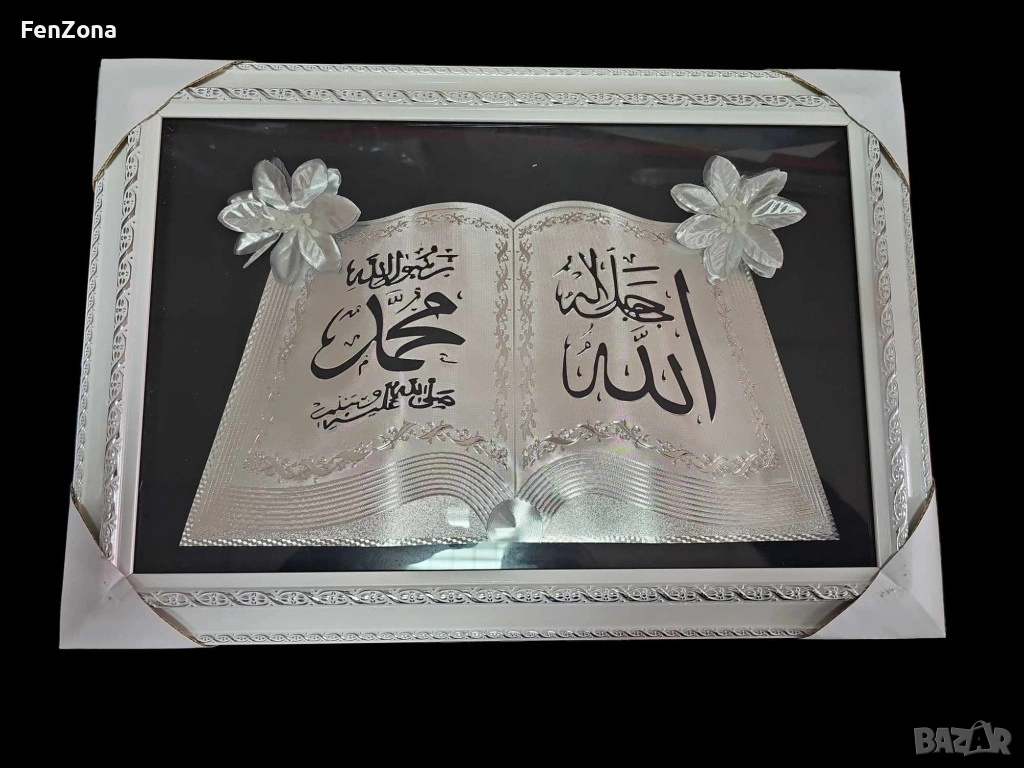 FenZona
جل جلاله
الله
رسول الله
محمد
صلى الله عليه وسلم
BAZAR